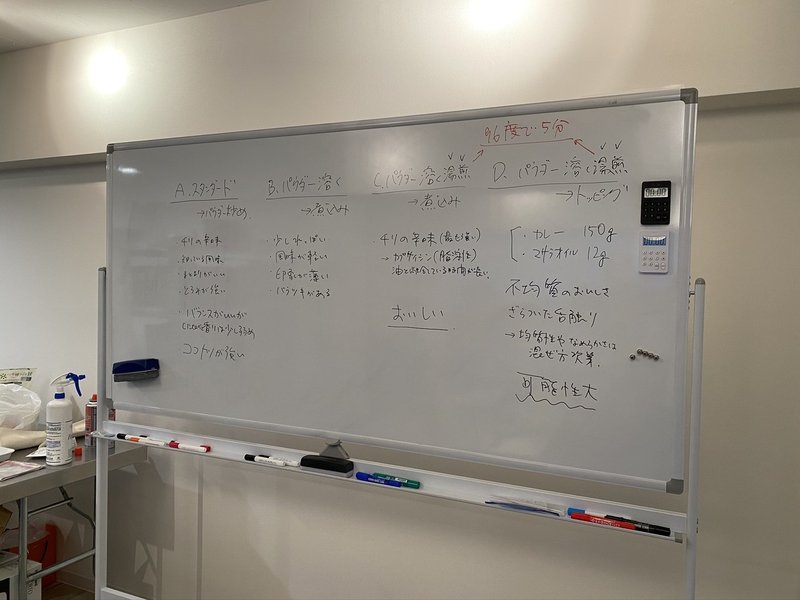 96度で5分
A. スタンダード
→パウダー炒め
・チリの辛味
・まとまりがいい
・とろみが強い
・バランスがいいが
香りは少し弱め
コクトノが強い
B. パウダー溶く
→煮込み
・少し水っぽい
・風味が軽い
・印象が薄い
・バラツキがある
C. パウダー溶く湯煎
→煮込み
・チリの辛味(最も強い)
→カプサイシン(脂溶性)
油と
時間が長い
おいしい
D. パウダー溶く湯煎
→トッピング
・カレー 150g
・マサラオイル 12g
不均質のおいしさ
ざらついた舌触り
→均質性やなめらかさは
混ぜ方次第。
可能性大